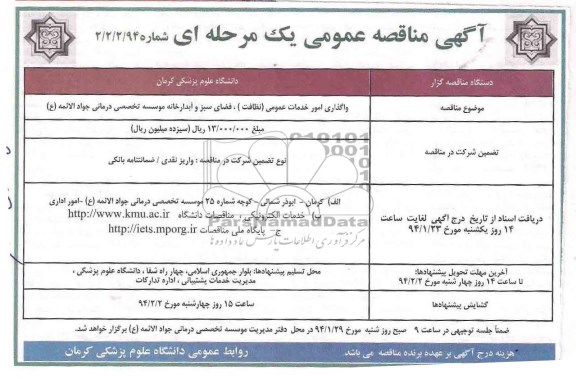 آگهی مناقصه عمومی یک مرحله ای شماره ۲/۲/۲/۹۴
دستگاه مناقصه گزار
دانشگاه علوم پزشکی کرمان
موضوع مناقصه
واگذاری امور خدمات عمومی (نظافت) ، فضای سبز و آبدارخانه موسسه تخصصی درمانی جواد الائمه (ع)
تضمین شرکت در مناقصه
مبلغ ۱۳/۰۰۰/۰۰۰ ریال (سیزده میلیون ریال)
نوع تضمین شرکت در مناقصه : واریز نقدی / ضمانتنامه بانکی
دریافت اسناد از تاریخ درج آگهی لغایت ساعت
۱۴ روز یکشنبه مورخ ۹۴/۱/۲۳
الف) کرمان - ابوذر شمالی - کوچه شماره ۲۵ موسسه تخصصی درمانی جواد الائمه (ع) -امور اداری
ب) خدمات الکترونیکی ، مناقصات دانشگاه http://www.kmu.ac.ir
ج- پایگاه ملی مناقصات http://iets.mporg.ir
ParsNamadData
مرکز فرآوری اطلاعات پارس نماد داده ها
آخرین مهلت تحویل پیشنهادها:
تا ساعت ۱۴ روز چهار شنبه مورخ ۹۴/۲/۲
محل تسلیم پیشنهادها: بلوار جمهوری اسلامی، چهار راه شفا ، دانشگاه علوم پزشکی ،
مدیریت خدمات پشتیبانی ، اداره تدارکات
گشایش پیشنهادها
ساعت ۱۵ روز چهارشنبه مورخ ۹۴/۲/۲
ضمناً جلسه توجیهی در ساعت ۹ صبح روز شنبه مورخ ۹۴/۱/۲۹ در محل دفتر مدیریت موسسه تخصصی درمانی جواد الائمه (ع) برگزار خواهد شد.
هزینه درج آگهی بر عهده برنده مناقصه می باشد
روابط عمومی دانشگاه علوم پزشکی کرمان